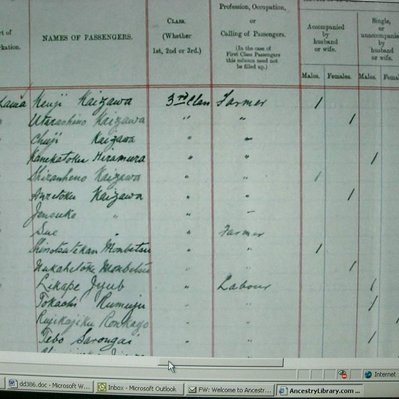 rt of
rkation.
NAMES OF PASSENGERS.
CLASS.
(Whether
1st, 2nd or 3rd.)
Profession, Occupation,
or
Calling of Passengers.
(In the case of
First Class Passengers
this column need not
be filled up.)
Accompanied
by
husband
or wife.
Males. Females.
Single,
or
unaccompanied
by
husband
or wife.
Males. Fem
Kenji Kaizawa 3rd Class Farmer 1
Utarashino Kaizawa " " 1
Chuji Kaizawa " "
Kanekatoku Hiramura " " 1
Shiranheno Kaizawa " " 1
Kaizawa " " 1
" "
Sue " " Farmer
Monbetsu " " 1
Monbetsu " " 1
Likape " Labour 1
Tokachi " " 1
" "
Tebo Sarongai " " 1
dd386.doc - Microsoft W...
Inbox - Microsoft Outlook
FW: Welcome to Ancest...
AncestryLibrary.com ...
Internet